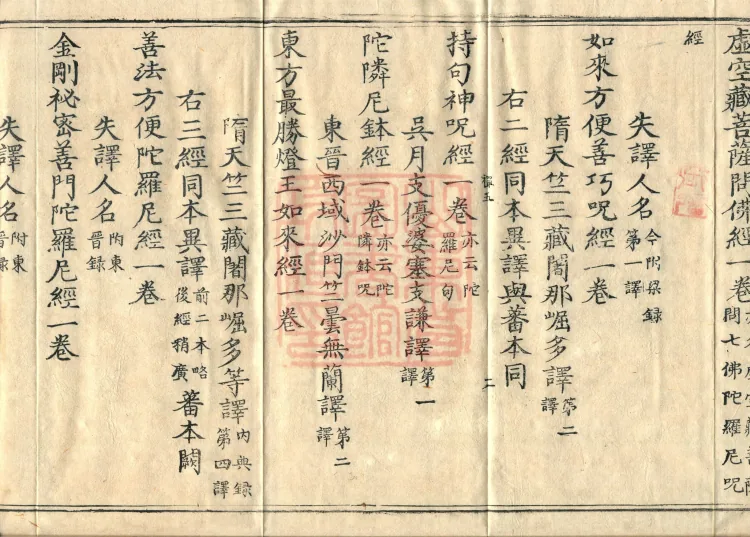 虛空藏菩薩問佛經一卷 問七佛陀羅尼呪
經
失譯人名 今附梁錄 第一譯
如來方便善巧呪經一卷
隋天竺三藏闍那崛多譯 第二譯
右二經同本異譯與蕃本同
二
持句神呪經一卷 亦云陀羅尼句
吳月支優婆塞支謙譯 第一譯
陀隣尼鉢經一卷 亦云陀隣鉢呪
東晉西域沙門竺曇無蘭譯 第二譯
東方最勝燈王如來經一卷
隋天竺三藏闍那崛多等譯 內典錄第四譯
右三經同本異譯 前二本略後經稍廣 蕃本闕
善法方便陀羅尼經一卷
失譯人名 附東晉錄
金剛祕密善門陀羅尼經一卷
失譯人名 附東晉錄